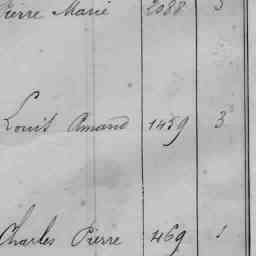 Pierre Marie 2088 3
Louis Amand 1459 3
Charles Pierre 469 1